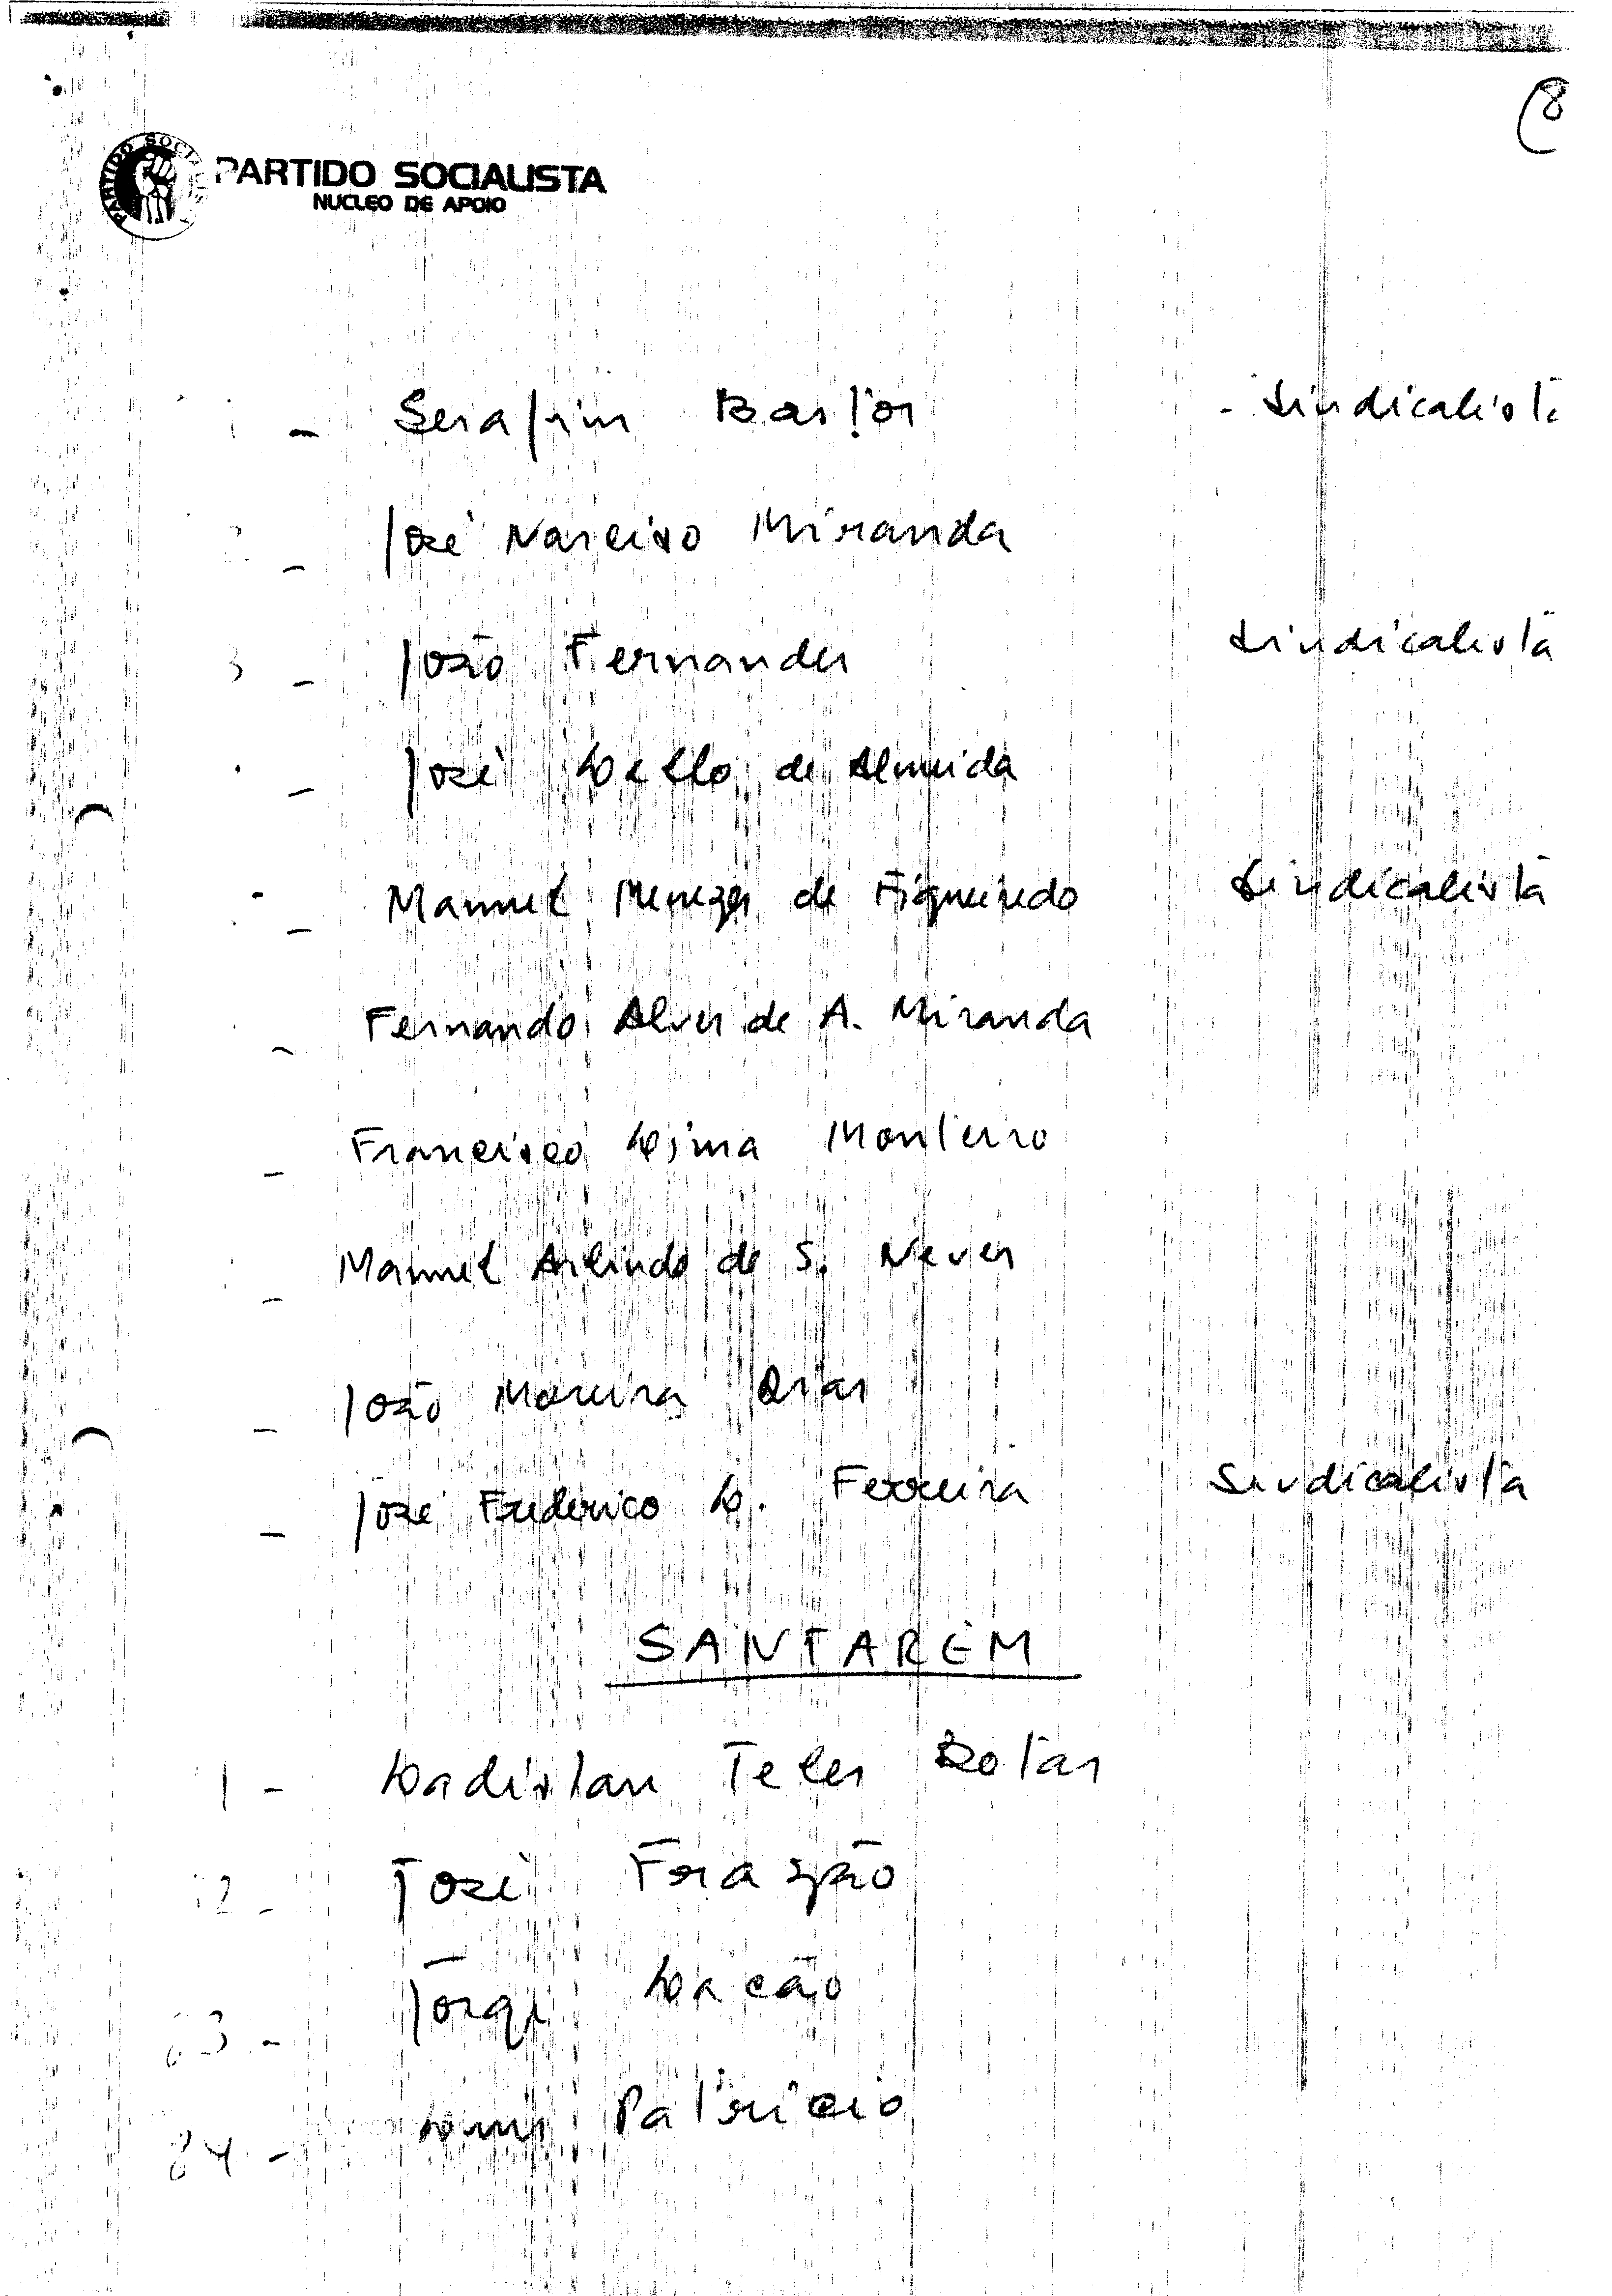 8
PARTIDO SOCIALISTA
NUCLEO DE APOIO
1 - Serafim Bastos - Sindicalista
2 - José Narciso Miranda
3 - João Fernandes Sindicalista
- José Lello de Almeida
- Manuel Menezes de Figueiredo Sindicalista
- Fernando Alves de A. Miranda
- Francisco Lima Monteiro
- Manuel Arlindo de S. Neves
- João Moreira Dias
- José Frederico L. Ferreira Sindicalista
SANTAREM
1 - Ladislau Teles Botas
2 - José Frazão
3 - Jorge Lacão
4 - Luis Patricio